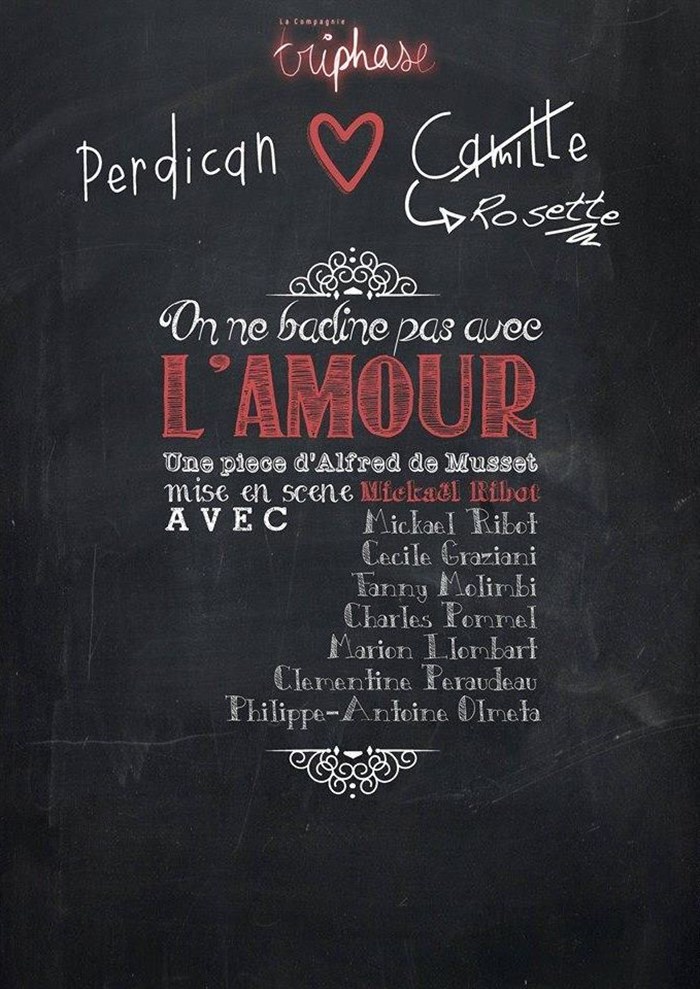 La Compagnie
triphase
Perdican Camille
Rosette
On ne badine pas avec
L'AMOUR
Une piece d'Alfred de Musset
mise en scene Mickaël Ribot
AVEC
Mickael Ribot
Cecile Graziani
Fanny Molimbi
Charles Pommel
Marion Llombart
Clementine Peraudeau
Philippe-Antoine Olmeta